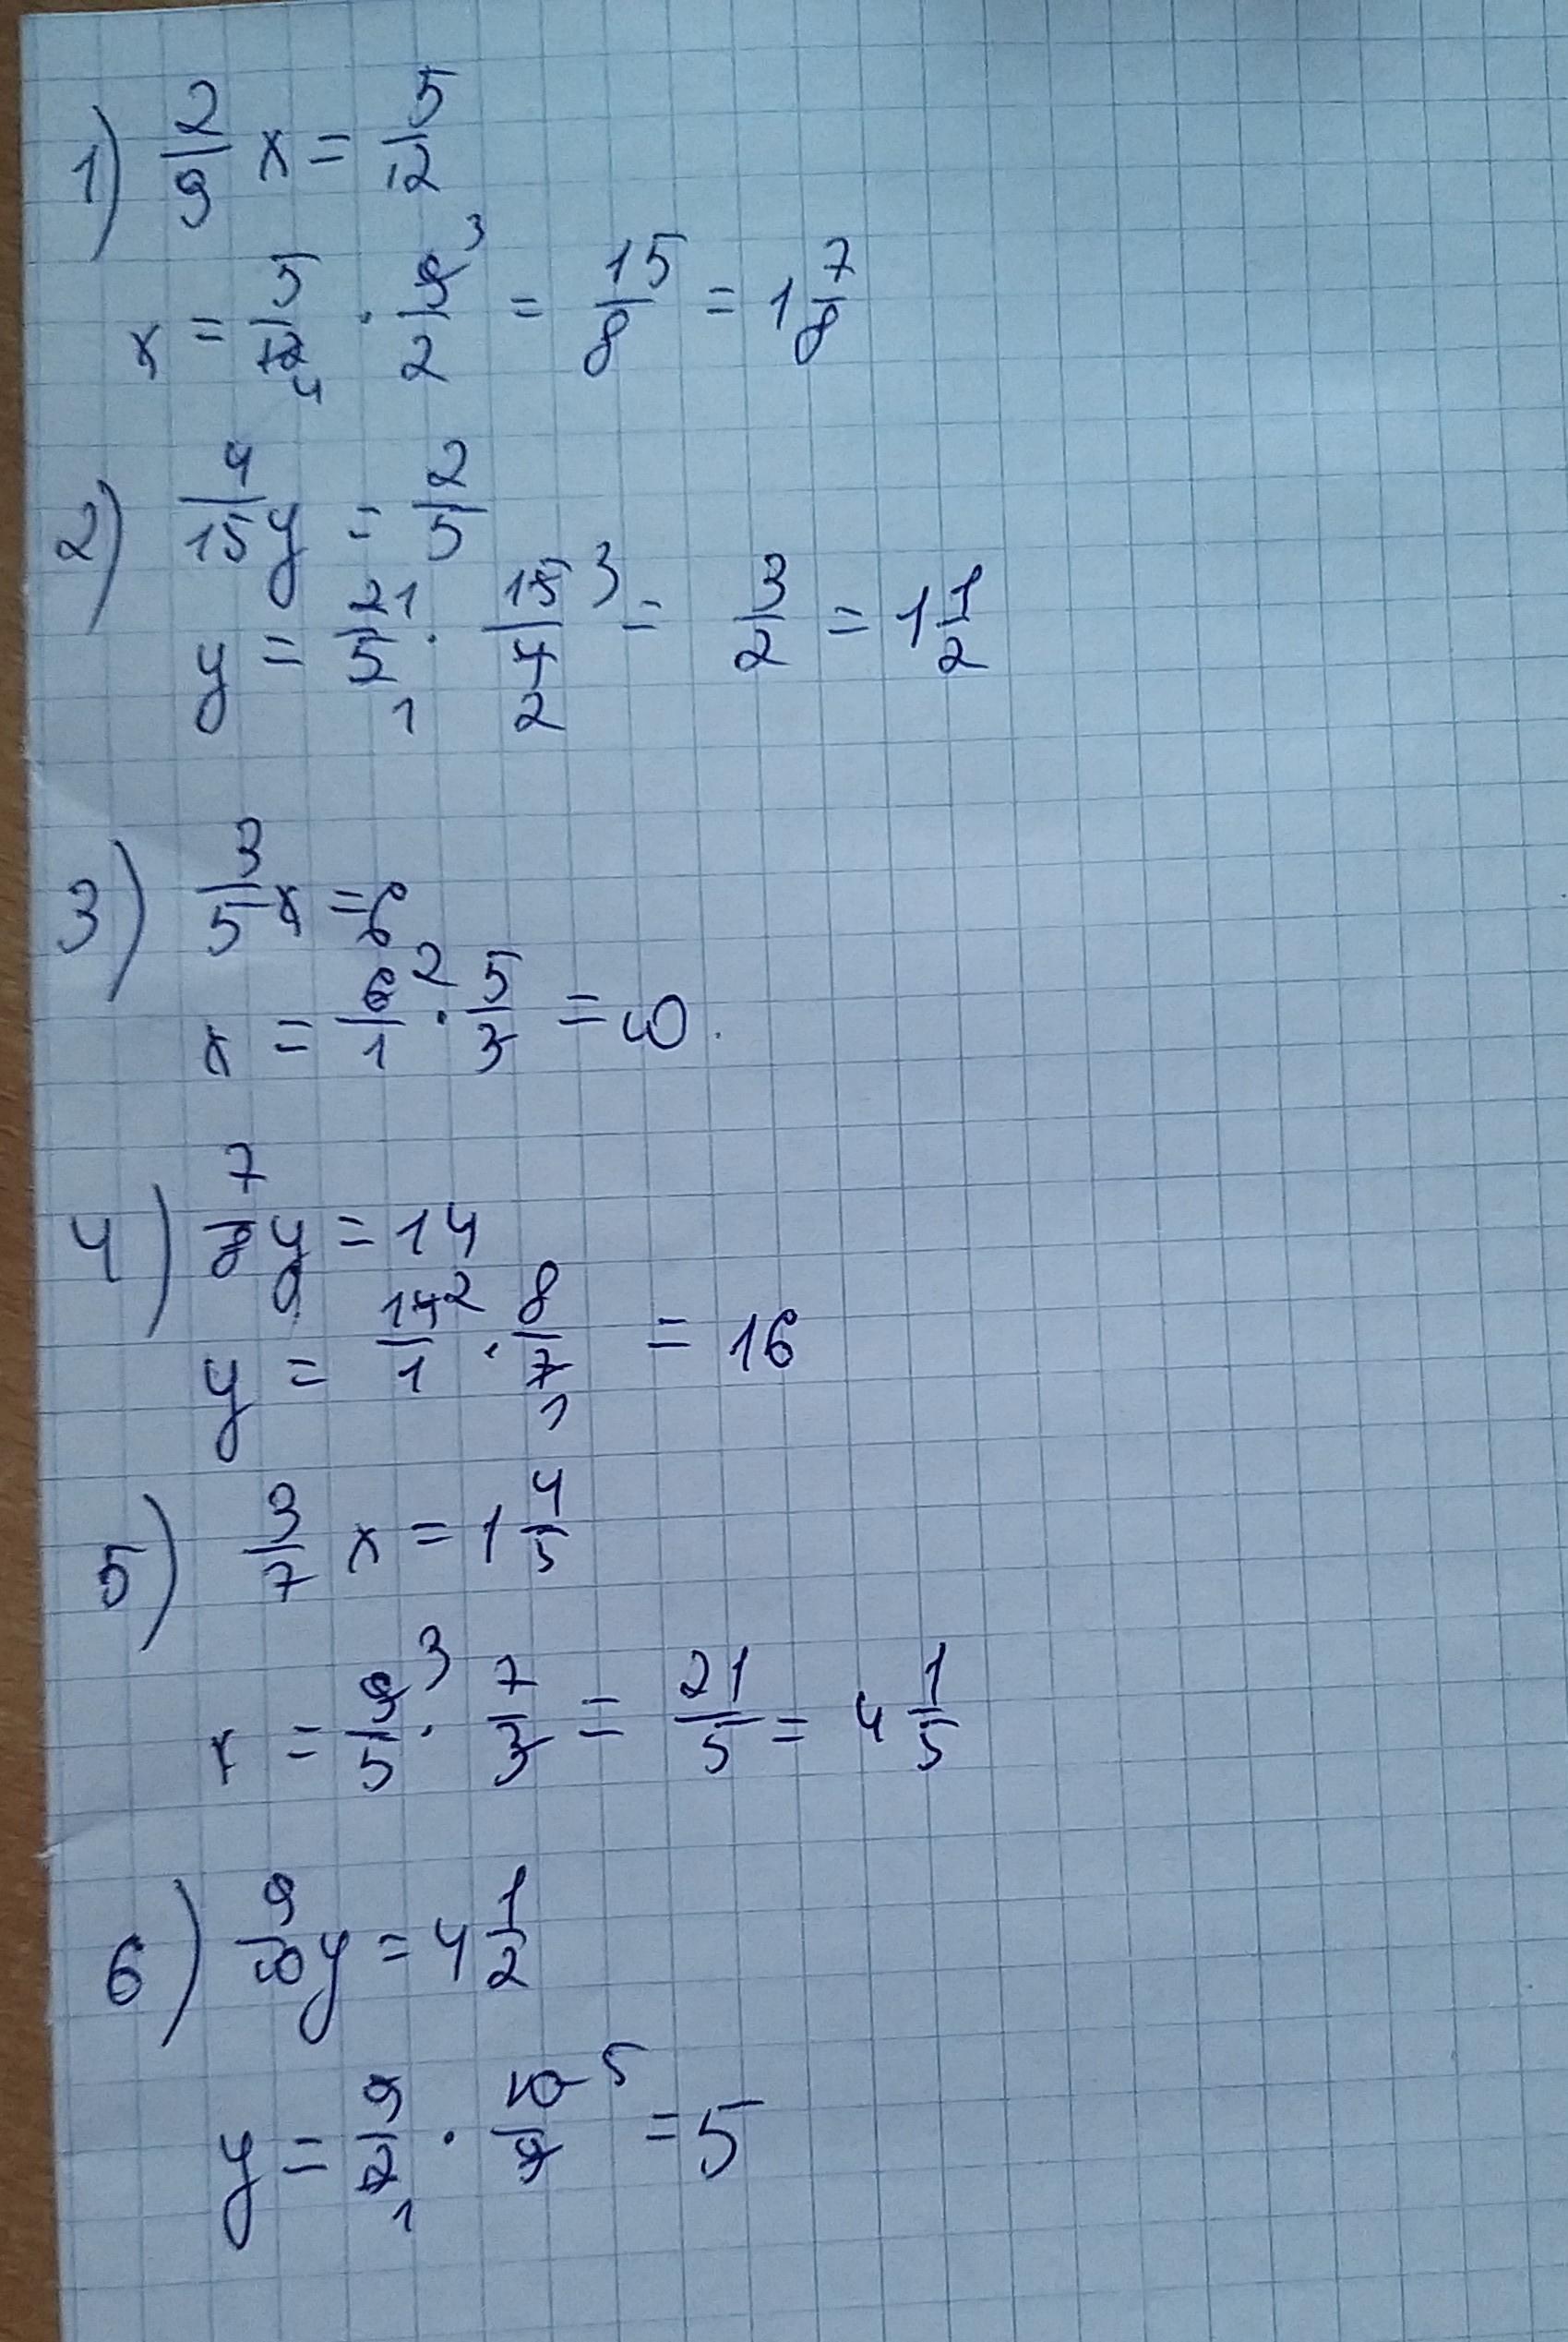 1) 2/9 x = 5/12
x = 5/12 4 · 9/2 3 = 15/8 = 1 7/8
2) 4/15 y = 2/5
y = 2/5 1 1 · 15/4 3 2 = 3/2 = 1 1/2
3) 3/5 x = 6
x = 6/1 2 · 5/3 = 10.
4) 7/8 y = 14
y = 14/1 2 · 8/7 1 = 16
5) 3/7 x = 1 4/5
x = 9/5 3 · 7/3 = 21/5 = 4 1/5
6) 9/10 y = 4 1/2
y = 9/2 1 · 10/9 5 = 5